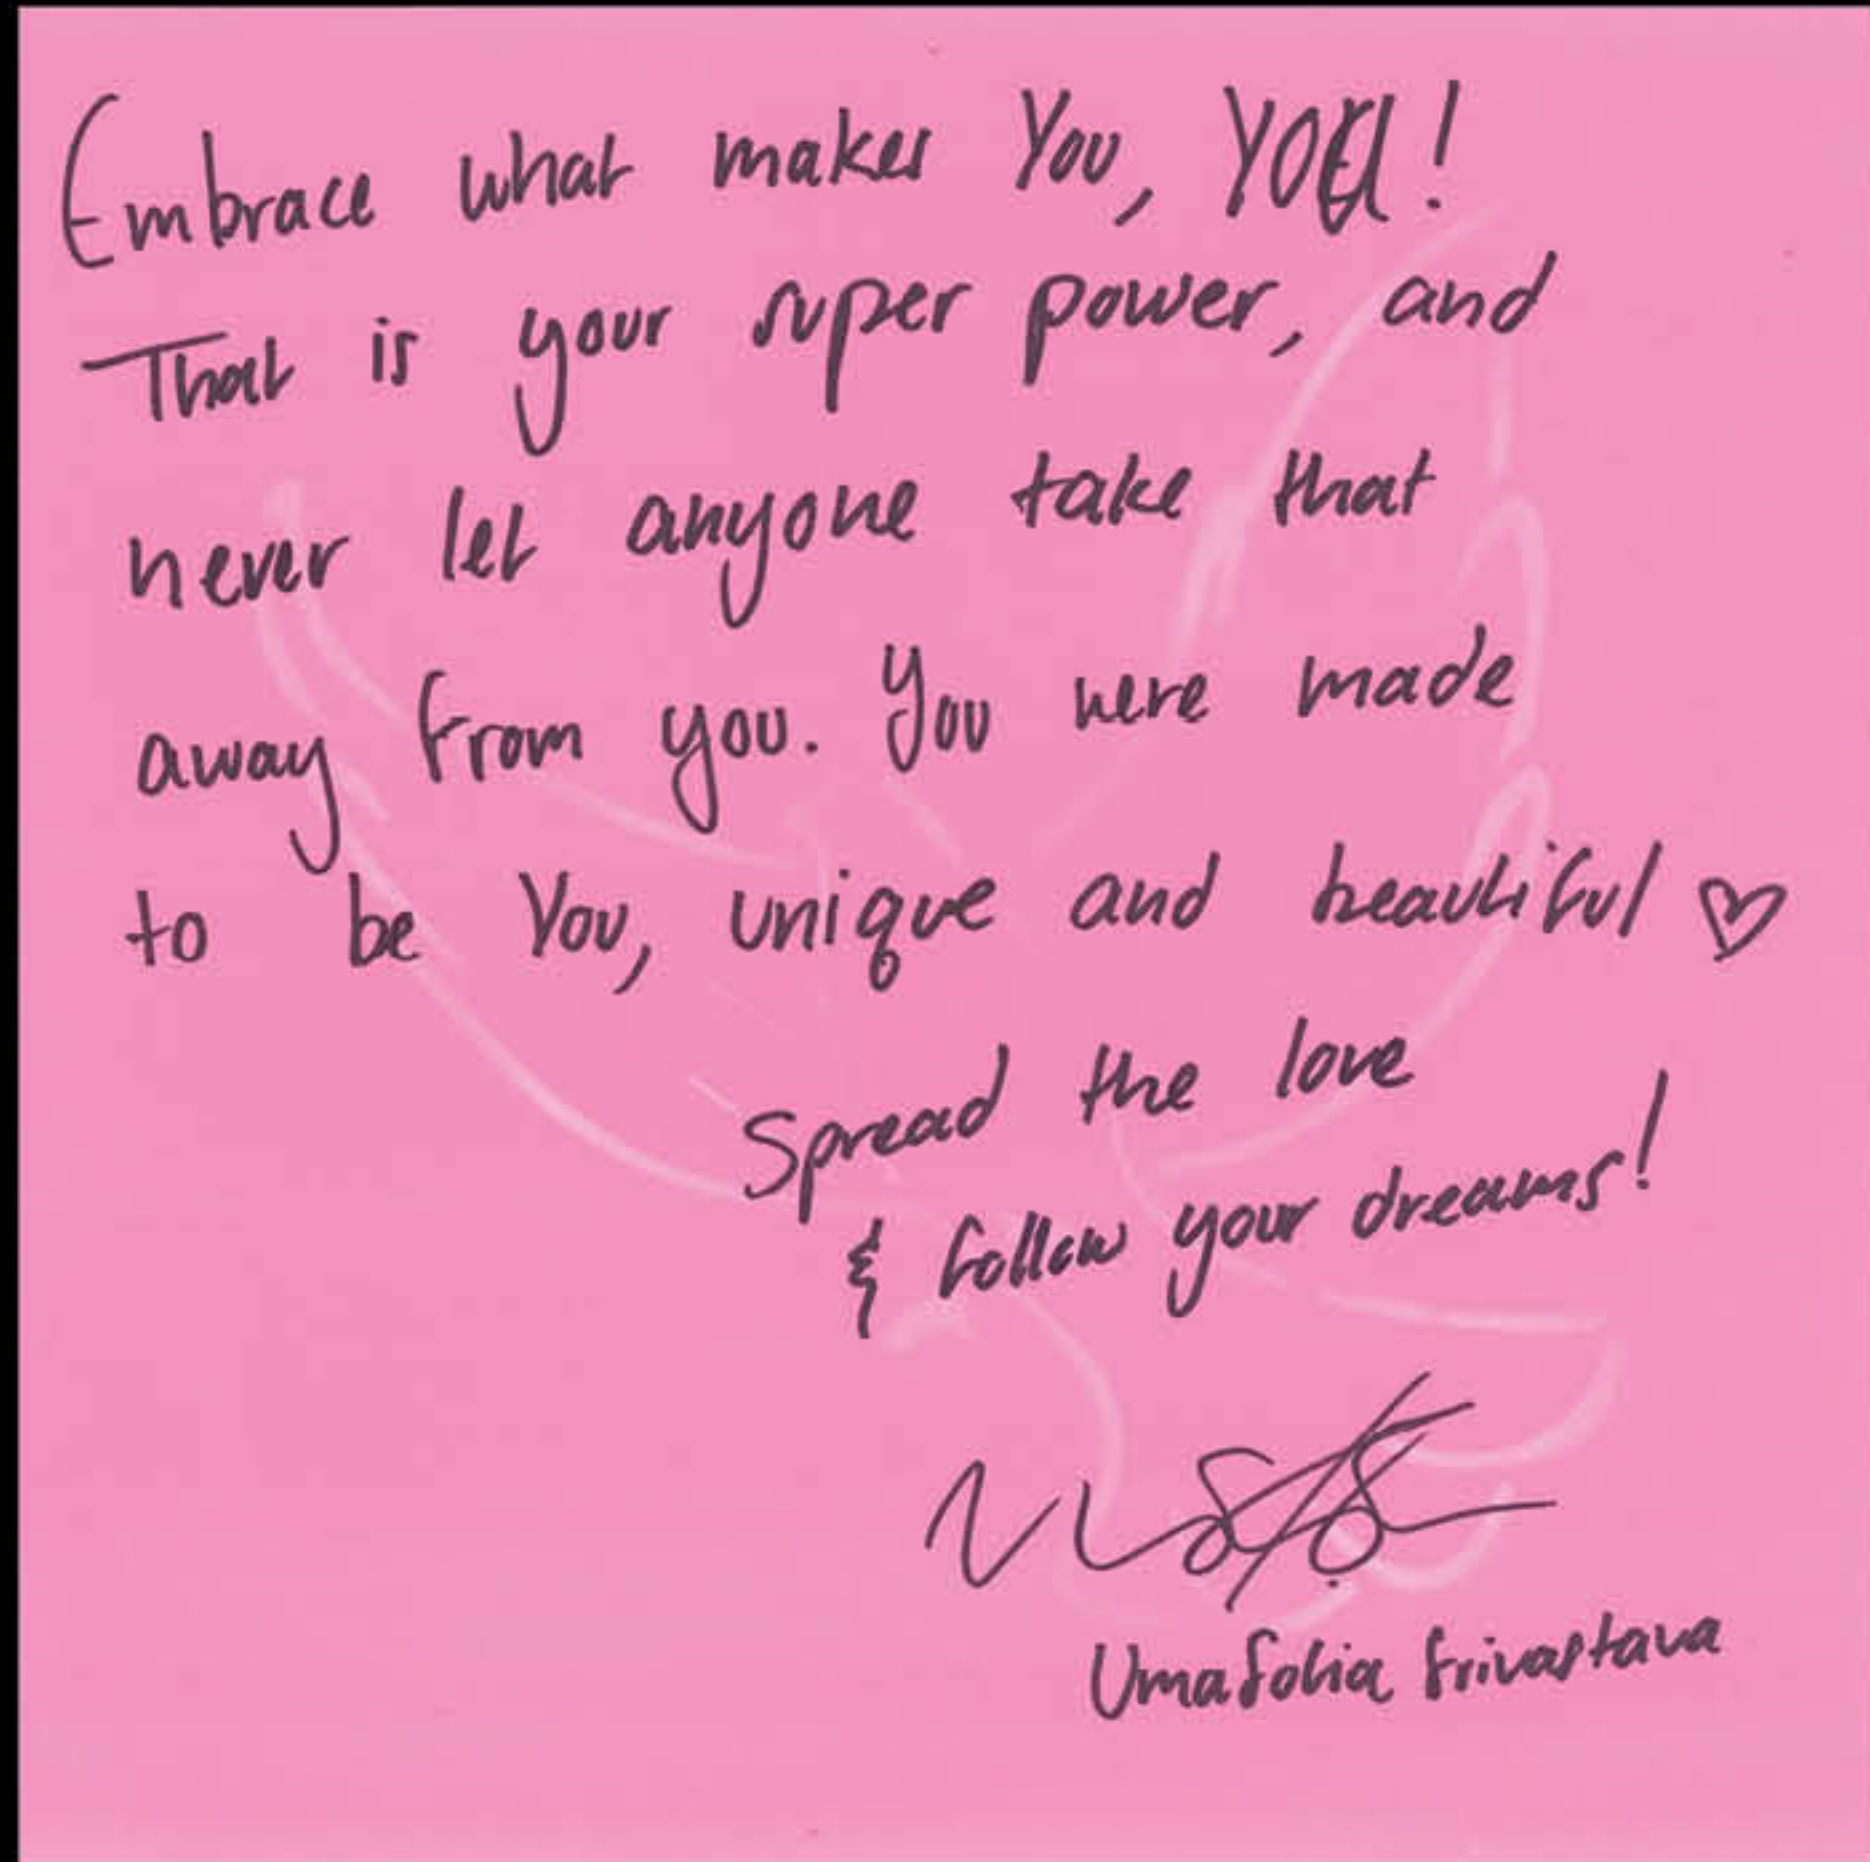 Embrace what makes You, YOU!
That is your super power, and
never let anyone take that
away from you. You were made
to be You, unique and beautiful ♡
Spread the love
& follow your dreams!
UmaSofia Srivastava